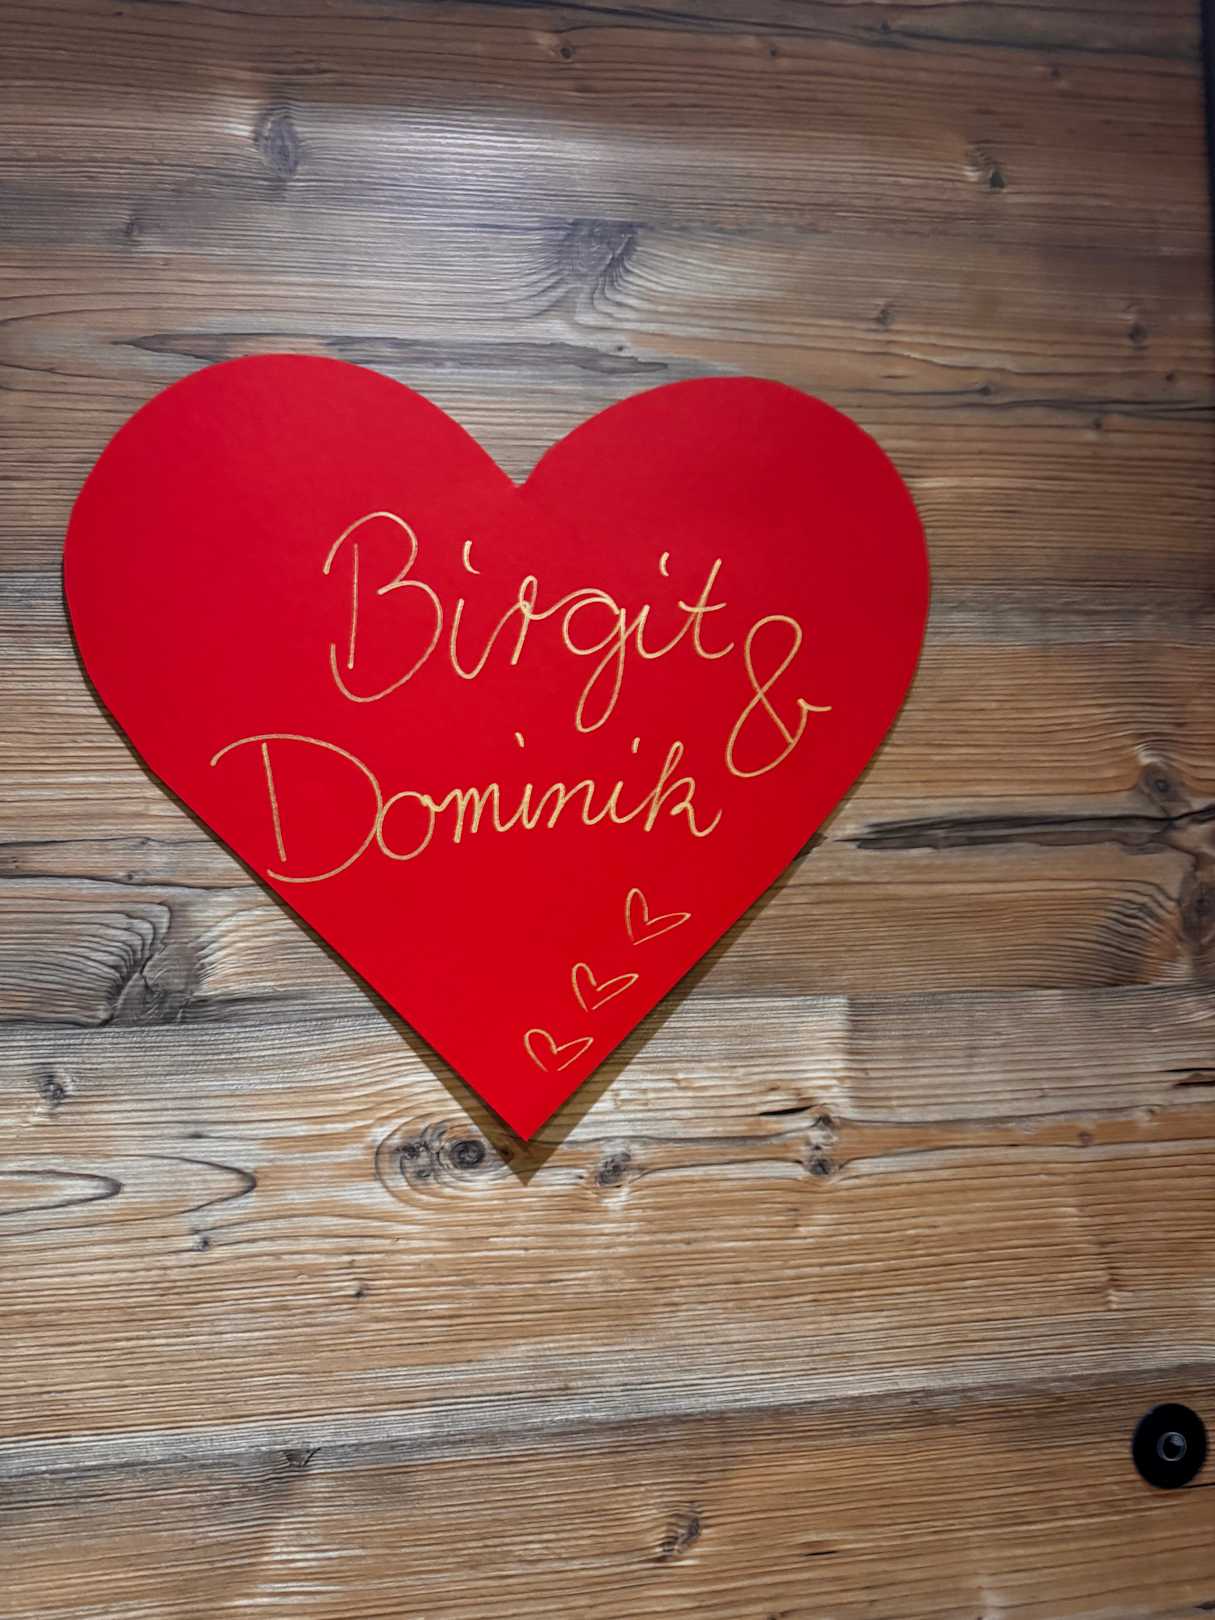 Birgit &
Dominik